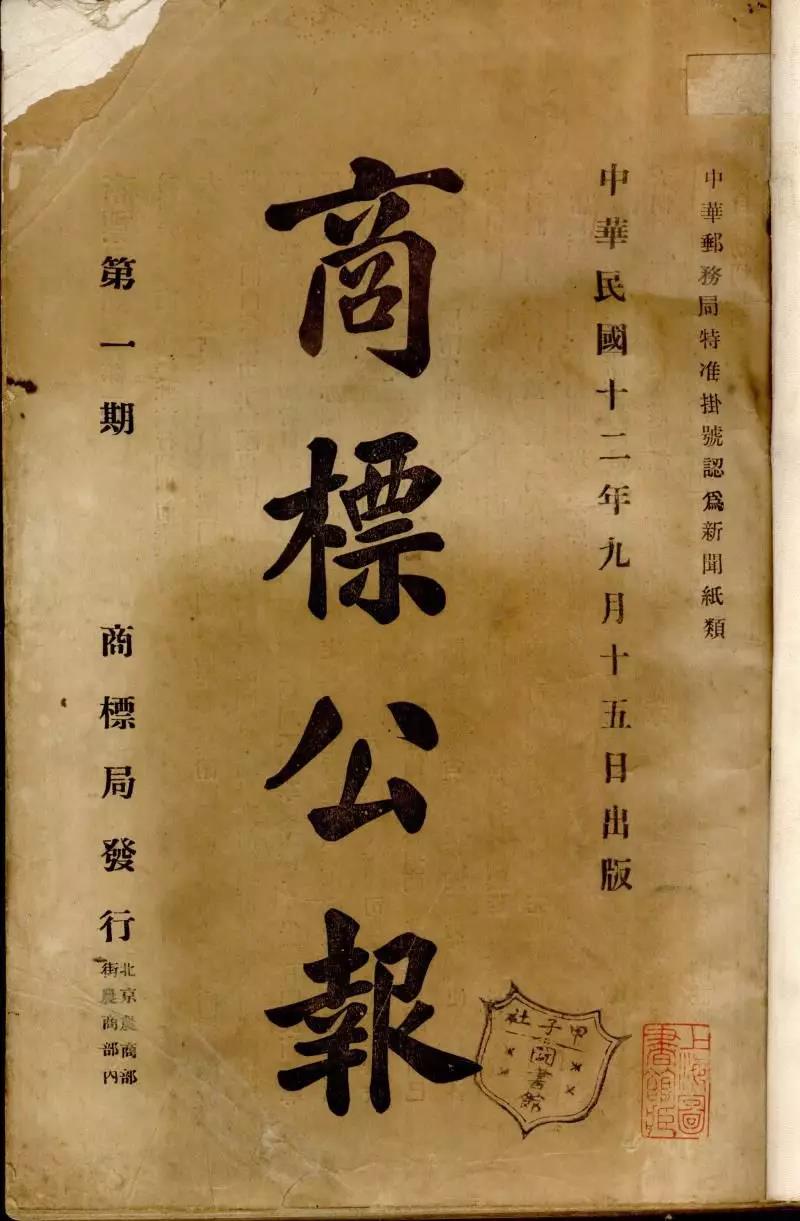 中華郵務局特准掛號認爲新聞紙類
中華民國十二年九月十五日出版
商標公報
第一期
商標局發行
北京農商部
街農商部內
甲子社
圖書館
上海圖
書館臧